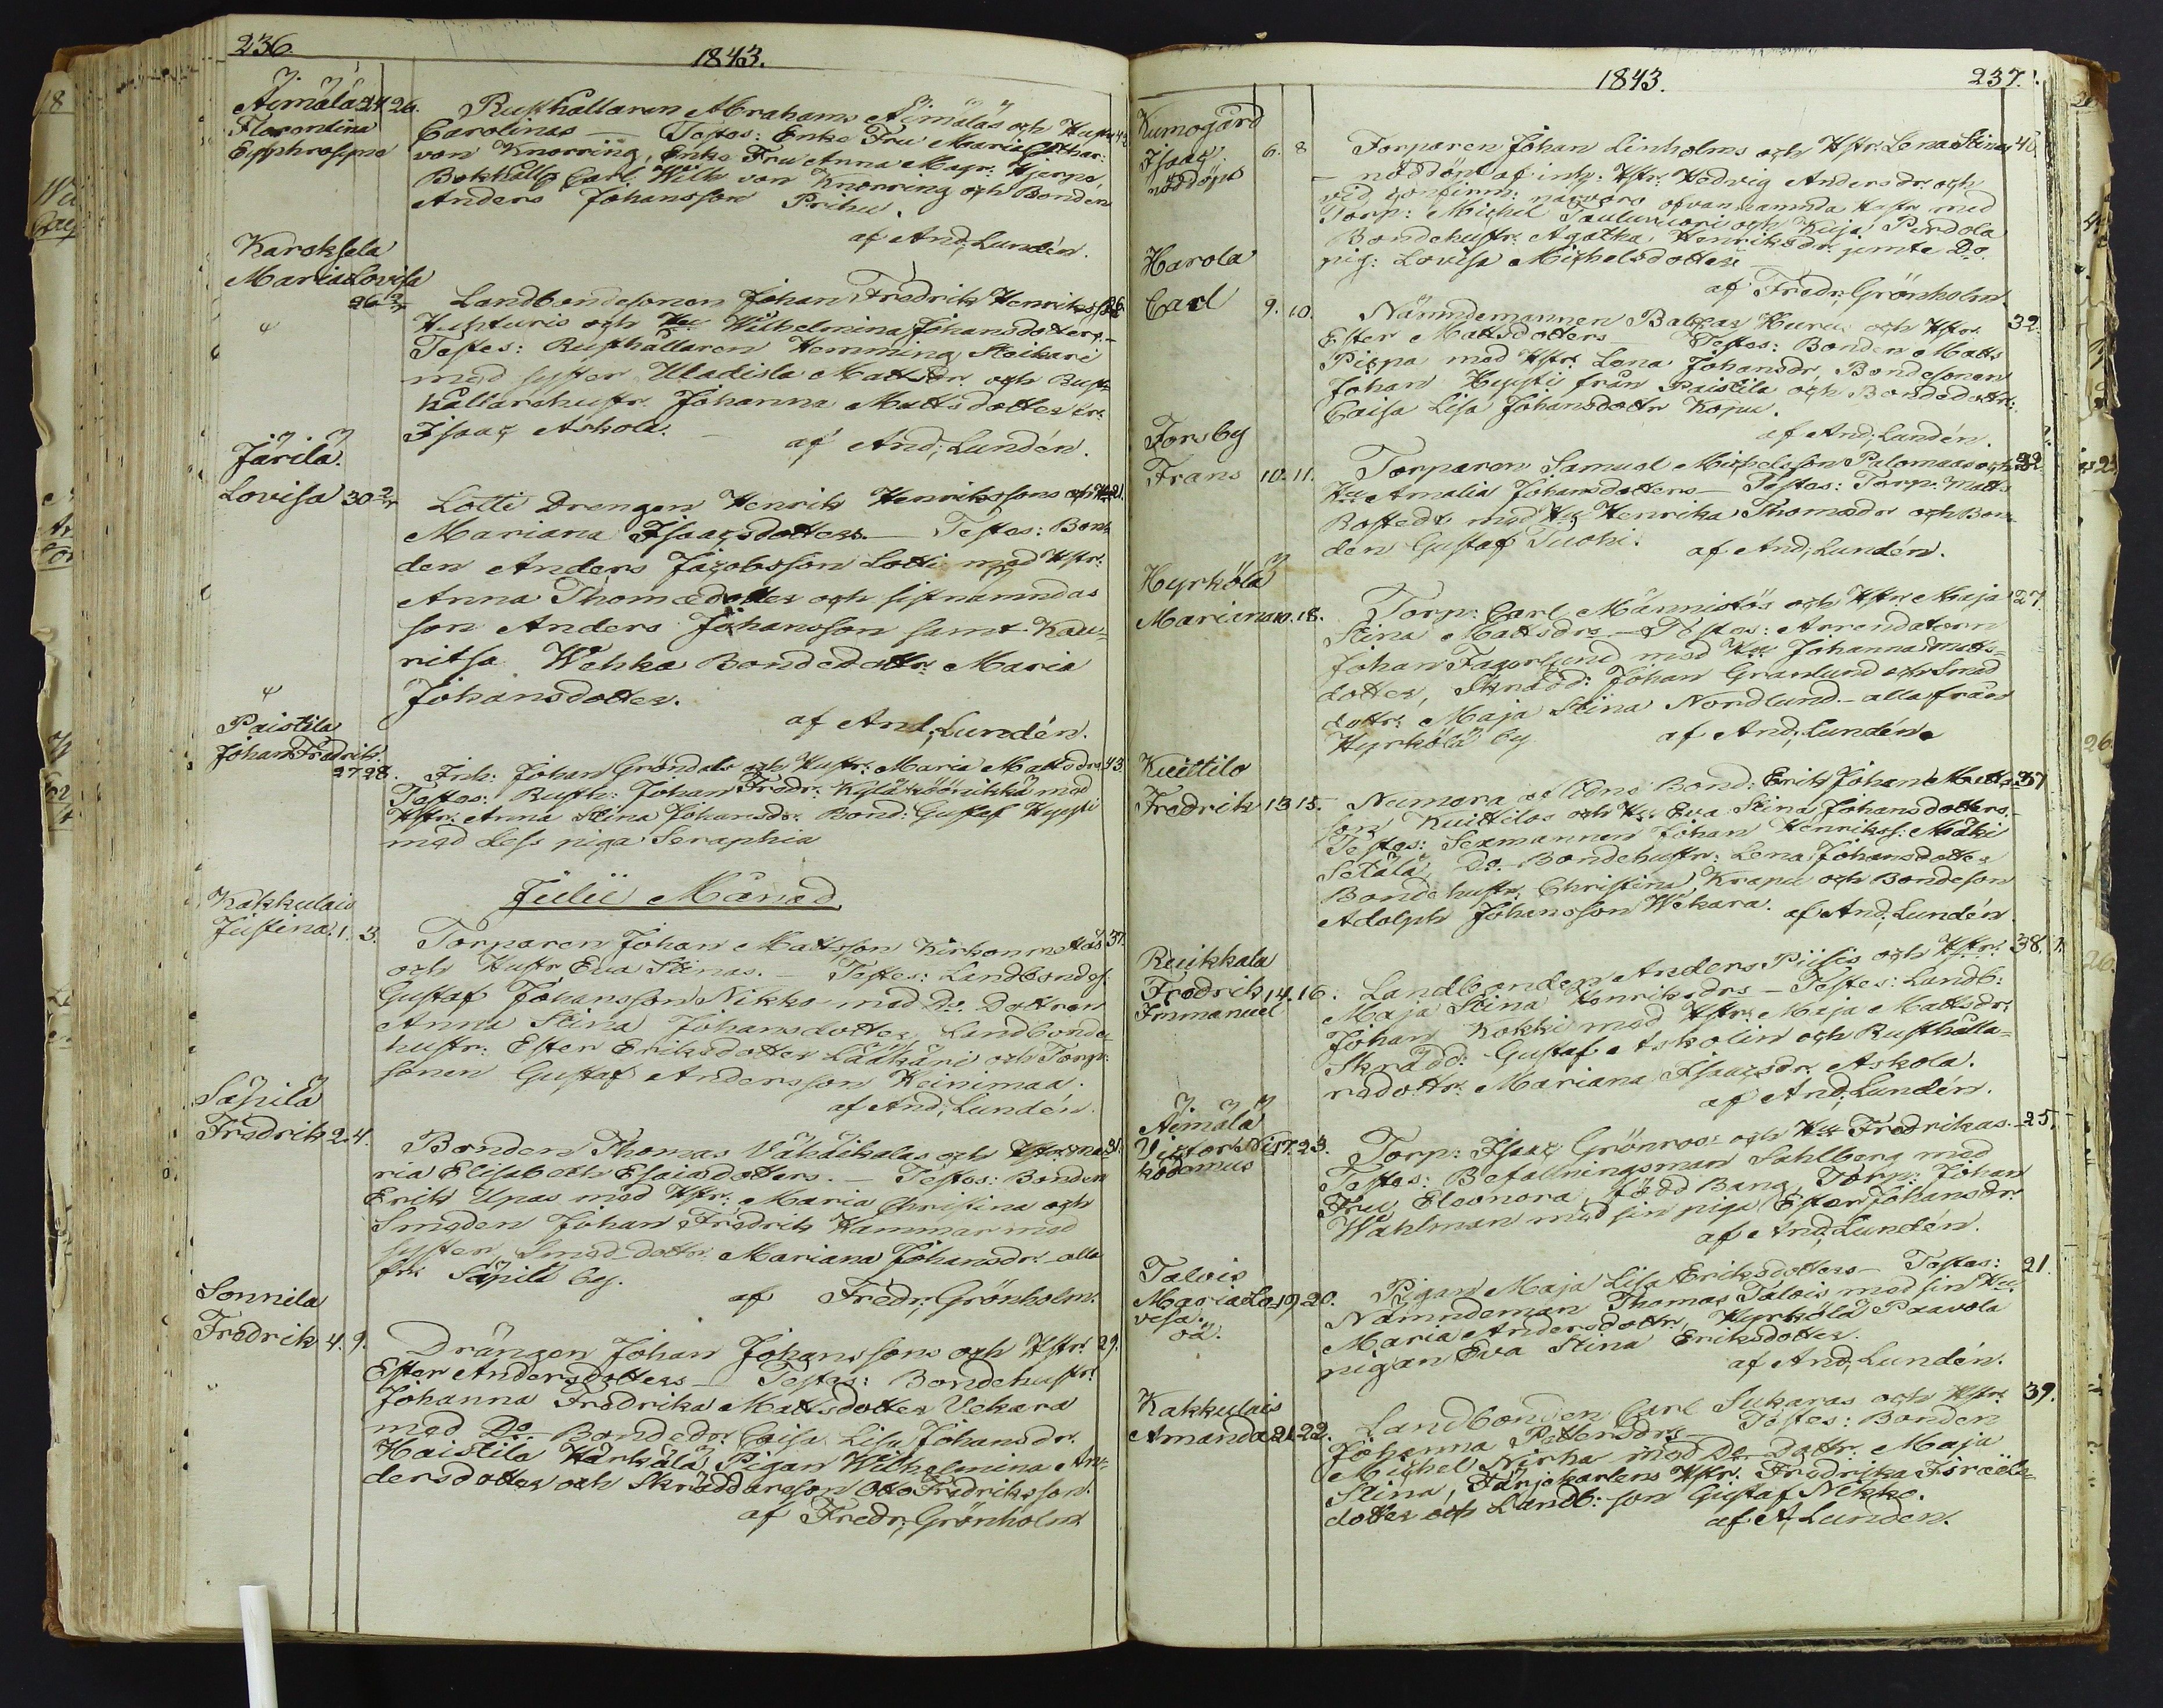 236.
1843.
Äimälä 24. 26.
Florentina
Epphrosyne
Rusthållaren Abrahams Äimäläs och Hustr. 42.
Carolinas — Testes: Enke Fru Maria Cathar:
von Knorring, Enke Fru Anna Magr: Hjerpe,
Bokhåll: Carl Wilh: von Knorring och Bonden
Anders Johansson Prihu.
af And; Lundén.
Karoksela
Maria Lovisa
26 2/7
Landbondesonen Johan Fredrik Henrikss: 28.
och Hu Wilhelmina Johansdotters. —
Testes: Rusthållaren Hemming Steikari
med syster Uladisla Mattsdr. och Rust-
hållarehustr. Johanna Mattsdotter fr.
Isaac Askola. —
af And; Lundén.
Järilä.
Lovisa 30 2/7
Lotti Drengen Henrik Henrikssons och H 21.
Mariana Isaacsdotters. — Testes: Bon-
den Anders Jacobsson Lotti med Hstr:
Anna Thomædotter och sistnämndas
son Anders Johansson samt Kau-
ritsa Wehka Bondedottr. Maria
Johansdotter.
af And; Lundén.
Paistila
Johan Fredrik.
27 28.
Inh: Johan Gröndahls och Hustr: Maria Mattsdrs 43.
Testes: Rusth: Johan Fredr: med
Hstr. Anna Stina Johansdr. Bond: Gustaf Hyysti
med dess piga Seraphia
Julii Månad
Kakkulais
Justina. 1. 3.
Torparen Johan Mattsson Kirkonmetäs 37.
och Hustr Eva Stinas. — Testes: Landbondes.
Gustaf Johansson Nikko med Do. Dottren
Anna Stina Johansdotter, Landbonde-
hustr: Ester Eriksdotter Lääkäri och Torp:
sonen Gustaf Andersson Heinimaa.
af And; Lundén.
Säpilä
Fredrik 2. 4.
Bonden Thomas Vähäikalas och Hstr. Ma- 31.
ria Elisabeth Esaiædotters. — Testes: Bonden
Erik Upas med Hstr. Maria Christina och
Smeden Johan Fredrik Hammar med
syster, Smed-dottr. Mariana Johansdr. alla
fr. Säpilä by.
af Fredr; Grönholm.
Sonnila
Fredrik 4. 9.
Drängen Johan Johanssons och Hstr. 29.
Ester Andersdotters — Testes: Bondehustr.
Johanna Fredrika Mattsdotter Uekara
med Do Bondedr. Caisa Lisa Johansdr.
Haistila Härkälä Pigan Wilhelmina An-
dersdotter och Skräddareson Otto Fredriksson.
af Fredr; Grönholm.
1843.
237.
Kumogård
Isaac. 6. 8
nöddöpt
Torparen Johan Linholms och Hstr. Lena Stinas 40.
— nöddöpt af inh: Hstr: Hedvig Andersdr. och
vid confirm: närvaro ofvannämnda Hustr med
Torp: Michel Tauluvuori och Kuja Perdola
Bondehustr. Agatha Henriksdr. jemte Do.
pig: Lovisa Michelsdotter
af Fredr; Grönholm.
Harola
Carl 9. 10.
Nämndemannen Baltzar Hurus och Hstr. 32.
Ester Mattsdotters — Testes: Bonden Matts
Piepa med Hstr. Lena Johansdr, Bondesonen
Johan Hyysti från Paistila och Bondedottr:
Caisa Lisa Johansdottr Kopu.
af And; Lundén.
Forsby
Frans 10. 11.
Torparen Samuel Michelsson Palomaas och 22.
Hu Amalia Johansdotters — Testes: Torp: Matts
Rostedt med Hu Henrika Thomasdr och Bon-
den Gustaf Tuohi.
af And; Lundén.
Hyrkölä
Mariana 10. 18.
Torp: Carl Männistös och Hstr Maja 27.
Stina Mattsdrs. — Testes: Arrendatorn
Johan Fagerlund med Hu Johanna Matts-
dotter, Skrädd: Johan Granlund och Smed
dottr: Maja Stina Nordlund. — alla från
Hyrkölä by
af And; Lundén.
Kuittilo
Fredrik 13. 15.
Numera aflidne Bond: Erik Johan Matts- 37
son Kuittilos och Hu Eva Stina Johansdotters. —
Testes: Sexmannen Johan Henrikss: Mälki
Setälä, Do. Bondehustr: Lena Johansdotter
Bondehustr. Christina Krapu och Bondeson
Adolph Johansson Wekara. af And; Lundén
Ruikkala
Fredrik 14. 16.
Immanuel
Landbonden Anders Piisis och Hstr. 38.
Maja Stina Henriksdrs — Testes: Landb:
Johan Kokki med Hstr. Maja Mattsdr.
Skrädd: Gustaf Askolin och Rusthålla-
redottr. Mariana Isaacsdr. Askola.
af And; Lundén.
Äimälä
Victor Ni- 17. 23.
kodemus
Torp: Isaac Grönros: och Hu Fredrikas. 25.
Testes: Befallningsman Sahlberg med
Fru, Eleonora, född Bang, Torp: Johan
Wahlman med sin piga Ester Johansdr.
af And; Lundén.
Talois
Maria Lo- 19. 20.
visa.
oä.
Pigan Maja Lisa Eriksdotters — Testes: 21.
Nämndeman Thomas Talois med sin Hu
Maria Andersdottr, Hyrkölä Paavola
pigan Eva Stina Eriksdotter.
af And; Lundén.
Kakkulais
Amanda 21. 22.
Landbonden Carl Sukaras och Hstr. 39.
Johanna Pettersdrs. Testes: Bonden
Michel Nirha med Do Dottr. Maja
Stina, Färjekarlens Hstr. Fredrika Israels-
dotter och Landb: son Gustaf Nikko.
af A; Lundén.